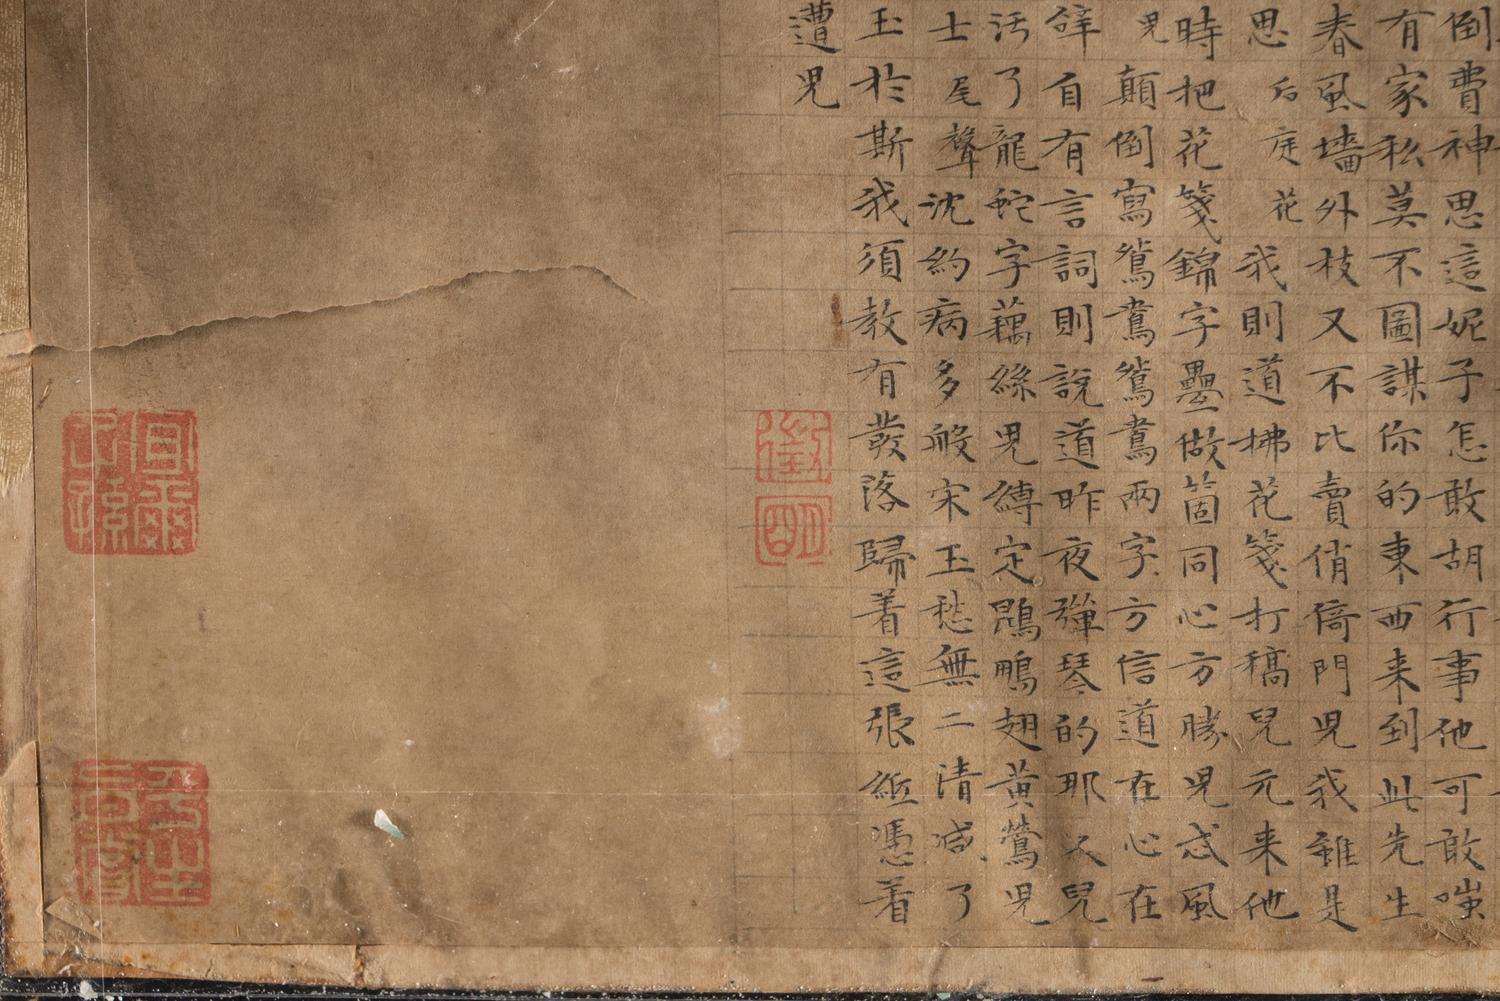 倒費神思這妮子怎敢胡行事他可敢嗤
有家私莫不圖謀你的東西来到此先生
春風墻外枝又不比賣俏倚門児我雖是
思 后庭花 我則道拂花箋打稿兒元来他
時把花箋錦字疊做箇同心方勝児忒風
児顛倒寫鴛鴦鴛鴦兩字方信道在心在
自有言詞則說道昨夜彈琴的那人兒
污了龍蛇字藕絲児縳定鵾鵬翅黃鶯児
士 尾聲 沈約病多般宋玉愁無二清減了
玉於斯我須教有發落歸着這張紙憑着
遭児
徵
明